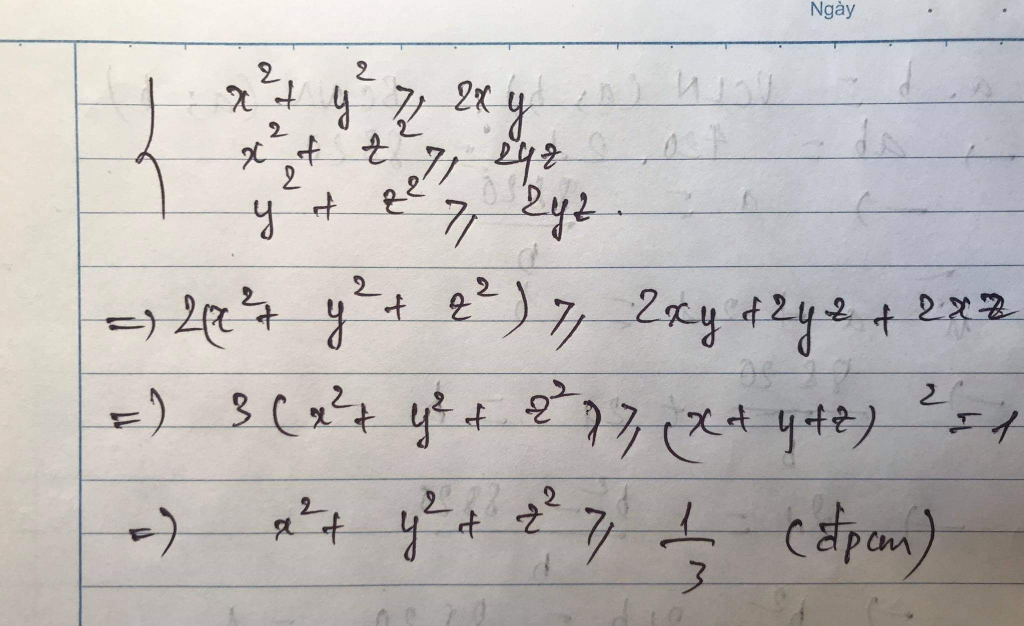 Ngày
x² + y² ≥ 2xy
x² + z² ≥ 2yz
y² + z² ≥ 2yz.
=> 2(x² + y² + z²) ≥ 2xy + 2yz + 2xz
=> 3(x² + y² + z²) ≥ (x + y + z)² = 1
=> x² + y² + z² ≥ 1/3 (đpcm)